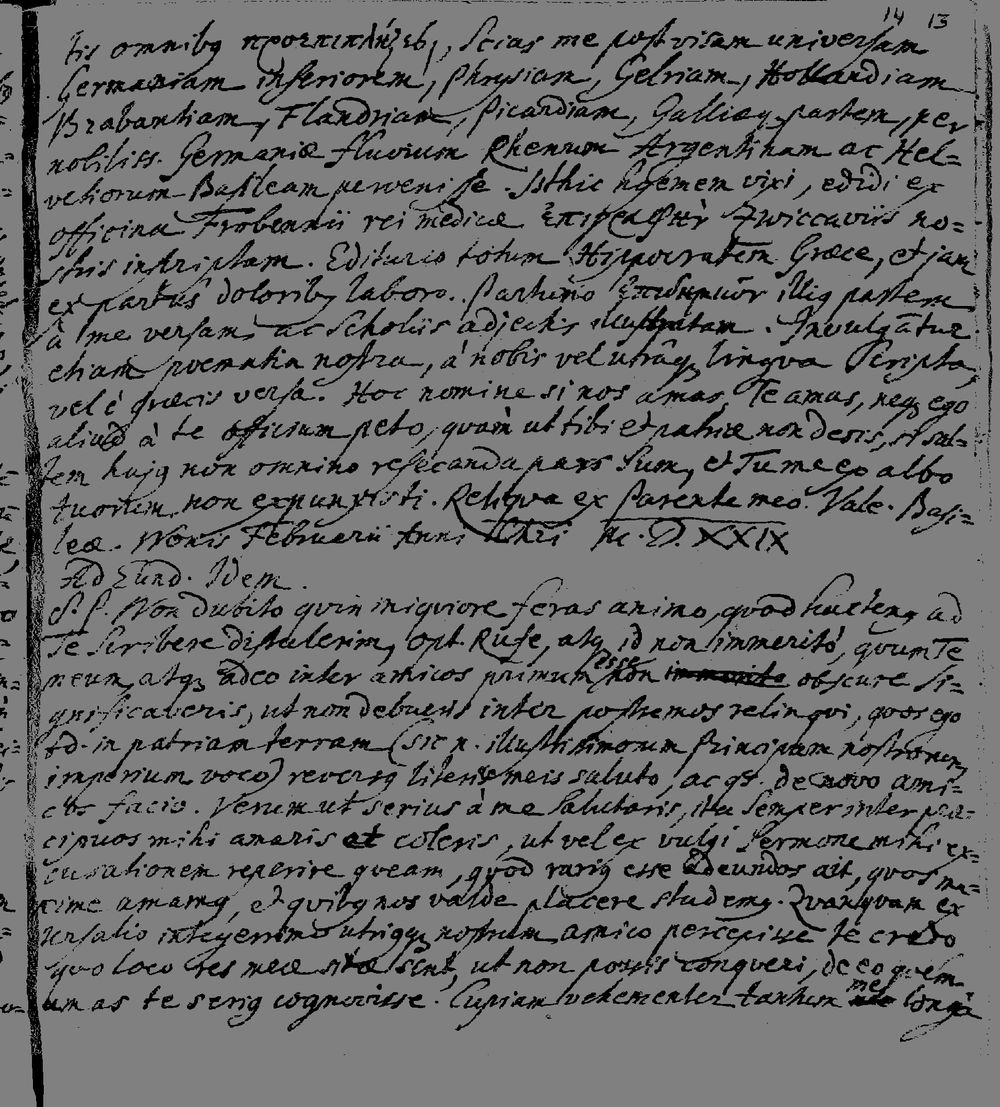 14 13
tis omnibꝰ προσπιπλήξεις, Scias me post visam universam
Germaniam inferiorem, Phrysiam, Gelriam, Hollandiam
Brabantiam, Flandriam, Picardiam, Galliæq. partem, per
nobiliss. Germaniæ fluvium Rhenum Argentinam ac Hel=
vetiorum Basileam pervenisse. Isthic hyemem vixi, edidi ex
officina Frobennii rei medicæ Zwiccaviis no=
stris inscriptam. Editurio totum Hippocratem Græce, et jam
ex partus doloribꝰ laboro. Parturio illiꝰ partem
à me versam ac Scholiis adjectis illustratam. Invulgātur
etiam poematia nostra, à nobis vel utrâqꝫ lingva Scripta,
vel è græcis versa. Hoc nomine si nos amas, Te amas, neqꝫ ego
aliud à te officium peto, quàm ut tibi et patriæ non desis, si sal=
tem hujꝰ non omnino resecanda pars Sum, et Tu me ex albo
tuorum non expunxisti. Reliqva ex Parente meo. Vale. Basi=
leæ. Nonis Februarii Anni Chri M. D. XXIX
Ad Eund. Idem.
S. P. Non dubito qvin iniqviore feras animo, qvod huctenꝰ ad
Te Scribere distulerim, Opt. Rufe, atqꝫ id non immeritò, qvum Te
meum, atqꝫ adeo inter amicos primum esse non immerito obscure Si=
gnificaveris, ut non debueris inter postremos relinqvi, qvos ego
in patriam terram (sic n. illustrissimorum Principum nostrorum
imperium voco) reversꝰ literis meis saluto, ac de novo ami=
cos facio. Verum ut serius à me Salutaris, ita Semper inter præ=
cipuos mihi amaris et coleris, ut vel ex vulgi Sermone mihi ex=
cusationem reperire qveam, qvod rariꝰ esse adeundos ait, qvos ma=
xime amamꝰ, et qvibꝰ nos valde placere studemꝰ. Qvanqvam ex
Ursalio integerrimo utriqꝫ nostrum amico percepisse te credo
qvo loco res meæ sitæ sint, ut non possis conqveri, de eo qvem
amas te seriꝰ cognovisse. Cupiam vehementer tantum mei longa